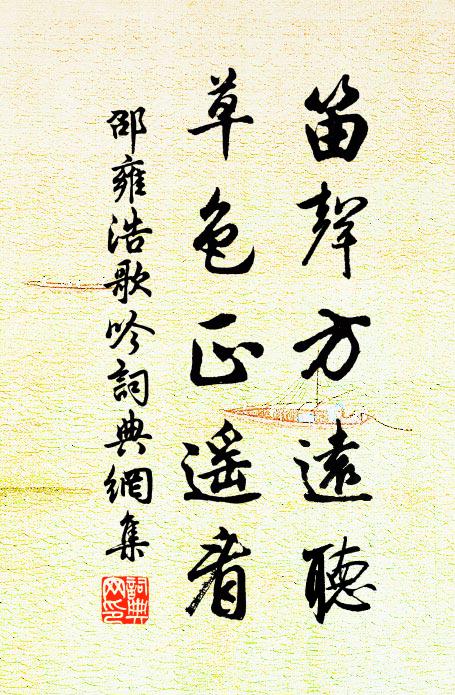 笛聲方遠聽
草色正遥看
邵雍浩歌吟詞典網集
詞典
网印